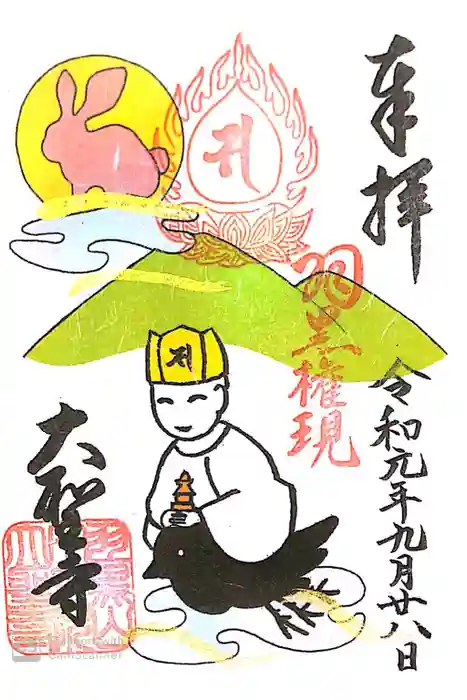 奉拝
令和元年九月廿八日
羽黒権現
大聖寺